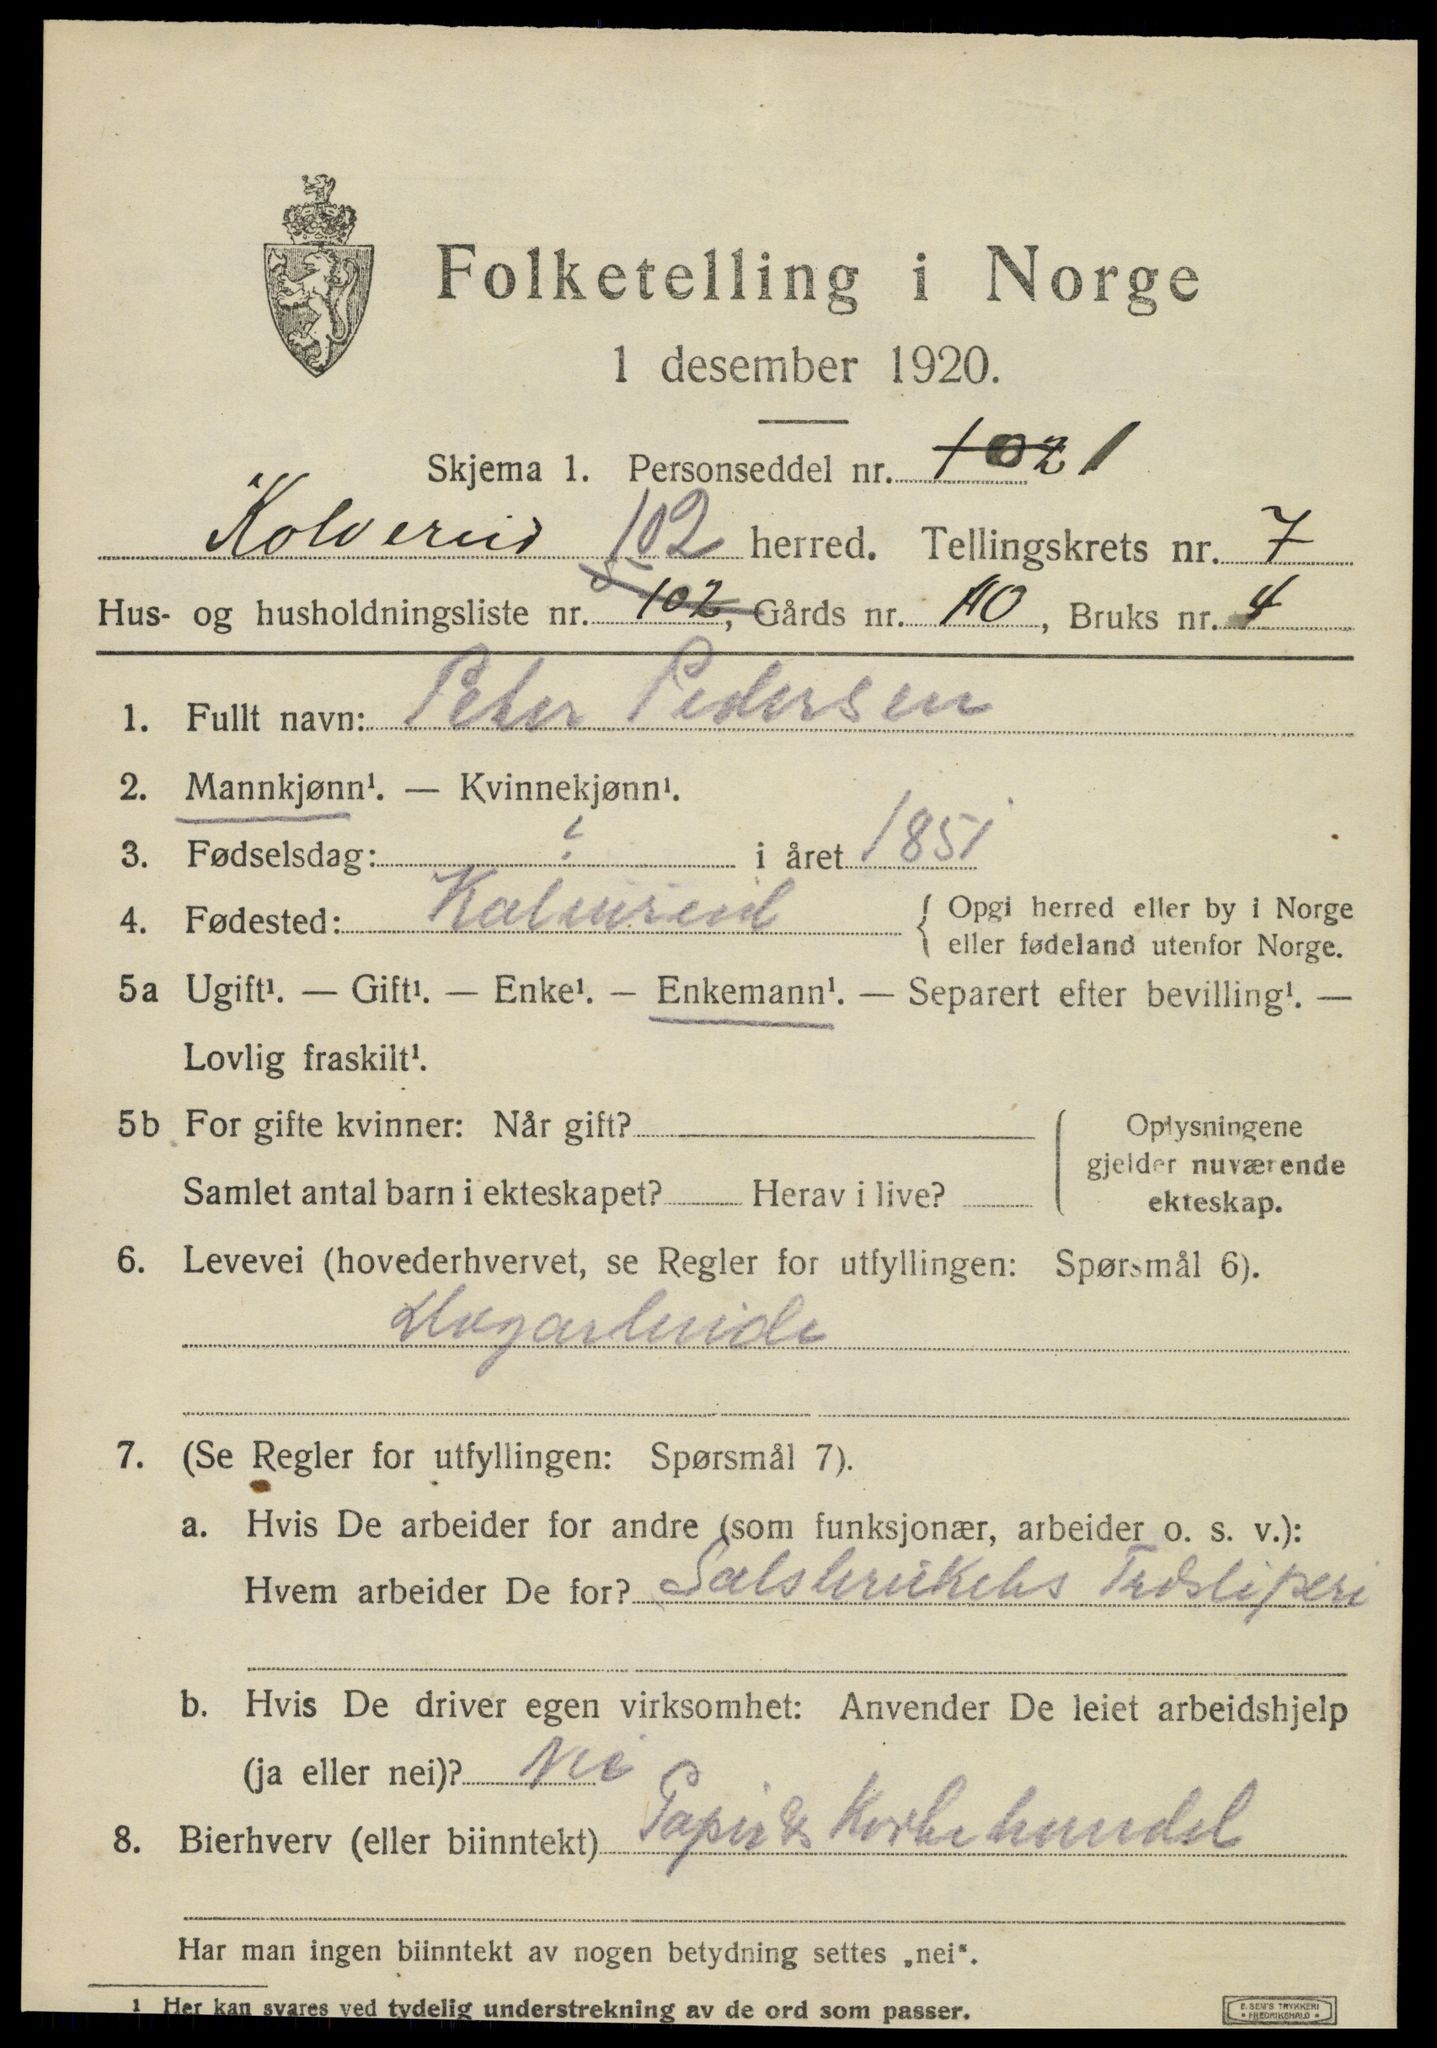 Folketelling i Norge
1 desember 1920.
Skjema 1. Personseddel nr. 102 1
Kolvereid 102 herred. Tellingskrets nr. 7
Hus- og husholdningsliste nr. 102, Gårds nr. 40, Bruks nr. 4
1. Fullt navn: Peter Pedersen
2. Mannkjønn¹. — Kvinnekjønn¹.
3. Fødselsdag: ? i året 1851
4. Fødested: Kolvereid { Opgi herred eller by i Norge
eller fødeland utenfor Norge.
5a Ugift¹. — Gift¹. — Enke¹. — Enkemann¹. — Separert efter bevilling¹. —
Lovlig fraskilt¹.
5b For gifte kvinner: Når gift? Oplysningene
gjelder nuværende
Samlet antal barn i ekteskapet? Herav i live? ekteskap.
6. Levevei (hovederhvervet, se Regler for utfyllingen: Spørsmål 6).
7. (Se Regler for utfyllingen: Spørsmål 7).
a. Hvis De arbeider for andre (som funksjonær, arbeider o. s. v.):
Hvem arbeider De for? Salsbrukets Træsliperi
b. Hvis De driver egen virksomhet: Anvender De leiet arbeidshjelp
(ja eller nei)? Nei
8. Bierhverv (eller biinntekt) Papir & handel
Har man ingen biinntekt av nogen betydning settes „nei“.
¹ Her kan svares ved tydelig understrekning av de ord som passer.
E. SEM'S TRYKKERI
FREDRIKSHALD